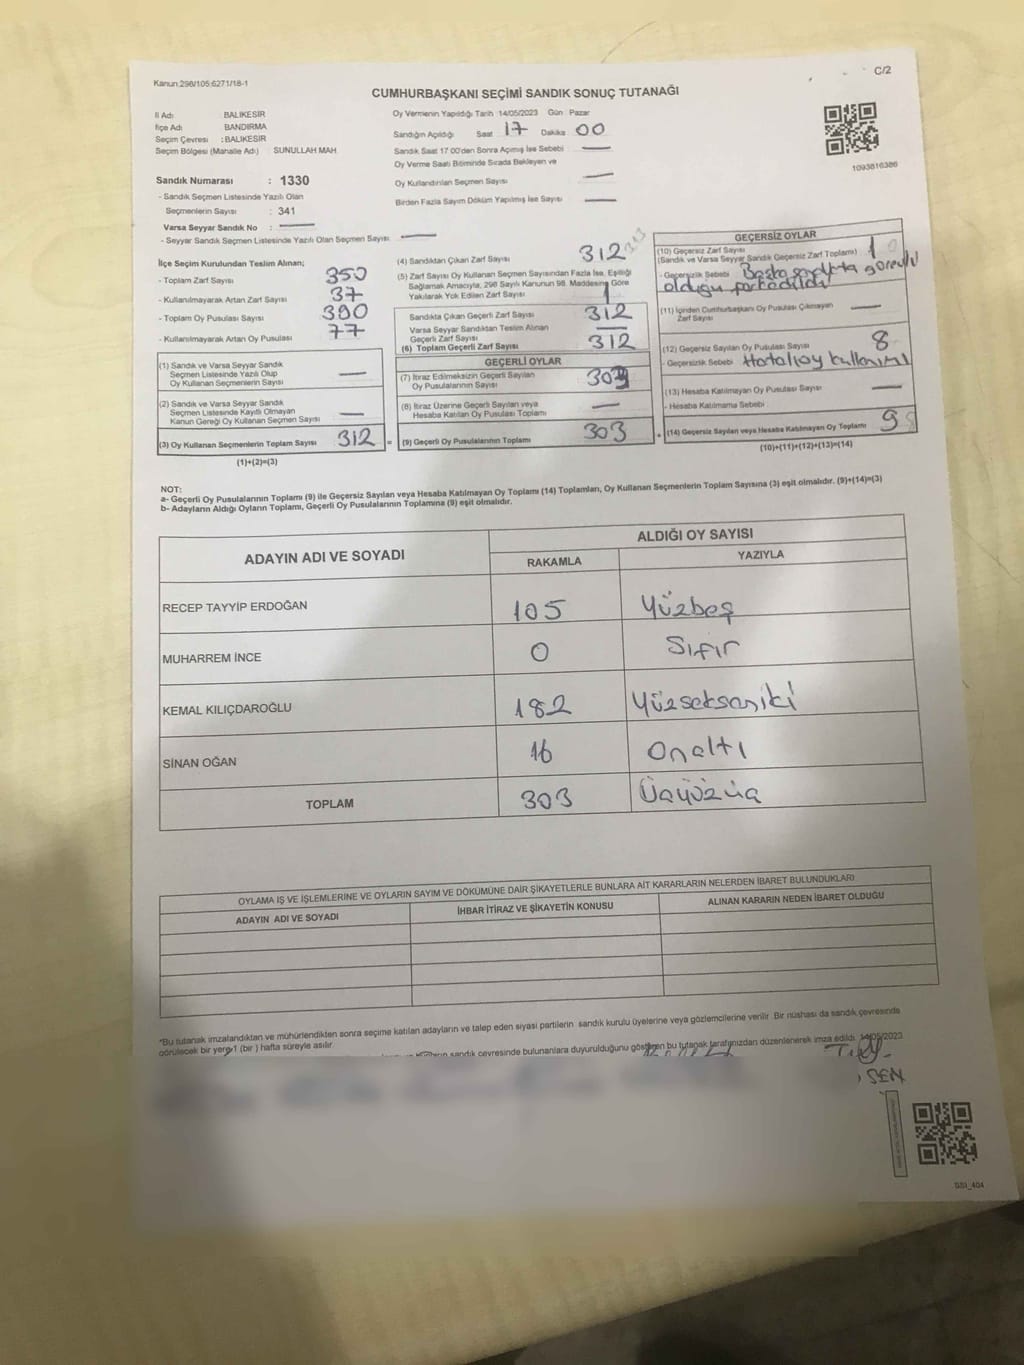 Kanun:298/105:6271/18-1
C/2
CUMHURBAŞKANI SEÇİMİ SANDIK SONUÇ TUTANAĞI
İl Adı : BALIKESİR
İlçe Adı : BANDIRMA
Seçim Çevresi : BALIKESİR
Seçim Bölgesi (Mahalle Adı) : SUNULLAH MAH
Sandık Numarası : 1330
- Sandık Seçmen Listesinde Yazılı Olan
Seçmenlerin Sayısı : 341
Varsa Seyyar Sandık No :
- Seyyar Sandık Seçmen Listesinde Yazılı Olan Seçmen Sayısı
Oy Vermenin Yapıldığı Tarih 14/05/2023 Gün Pazar
Sandığın Açıldığı Saat 17 Dakika 00
Sandık Saat 17:00'den Sonra Açılmış İse Sebebi
Oy Verme Saati Bitiminde Sırada Bekleyen ve
Oy Kullandırılan Seçmen Sayısı
Birden Fazla Sayım Döküm Yapılmış İse Sayısı
1093816386
İlçe Seçim Kurulundan Teslim Alınan;
- Toplam Zarf Sayısı 350
- Kullanılmayarak Artan Zarf Sayısı 37
- Toplam Oy Pusulası Sayısı 390
- Kullanılmayarak Artan Oy Pusulası 77
(1) Sandık ve Varsa Seyyar Sandık
Seçmen Listesinde Yazılı Olup
Oy Kullanan Seçmenlerin Sayısı
(2) Sandık ve Varsa Seyyar Sandık
Seçmen Listesinde Kayıtlı Olmayan
Kanun Gereği Oy Kullanan Seçmen Sayısı
(3) Oy Kullanan Seçmenlerin Toplam Sayısı 312 =
(1)+(2)=(3)
(4) Sandıktan Çıkan Zarf Sayısı 312 313
(5) Zarf Sayısı Oy Kullanan Seçmen Sayısından Fazla İse, Eşitliği
Sağlamak Amacıyla, 298 Sayılı Kanunun 98. Maddesine Göre
Yakılarak Yok Edilen Zarf Sayısı 1
Sandıkta Çıkan Geçerli Zarf Sayısı 312
Varsa Seyyar Sandıktan Teslim Alınan
Geçerli Zarf Sayısı
(6) Toplam Geçerli Zarf Sayısı 312
GEÇERLİ OYLAR
(7) İtiraz Edilmeksizin Geçerli Sayılan
Oy Pusulalarının Sayısı 303
(8) İtiraz Üzerine Geçerli Sayılan veya
Hesaba Katılan Oy Pusulası Toplamı
(9) Geçerli Oy Pusulalarının Toplamı 303 +
GEÇERSİZ OYLAR
(10) Geçersiz Zarf Sayısı
(Sandık ve Varsa Seyyar Sandık Geçersiz Zarf Toplamı) 1
- Geçersizlik Sebebi Başka sandıkta görevli
olduğu farkedildi
(11) İçinden Cumhurbaşkanı Oy Pusulası Çıkmayan
Zarf Sayısı
(12) Geçersiz Sayılan Oy Pusulası Sayısı 8
- Geçersizlik Sebebi Hatalı oy kullanımı
(13) Hesaba Katılmayan Oy Pusulası Sayısı
- Hesaba Katılmama Sebebi
(14) Geçersiz Sayılan veya Hesaba Katılmayan Oy Toplamı 9
(10)+(11)+(12)+(13)=(14)
NOT:
a- Geçerli Oy Pusulalarının Toplamı (9) ile Geçersiz Sayılan veya Hesaba Katılmayan Oy Toplamı (14) Toplamları, Oy Kullanan Seçmenlerin Toplam Sayısına (3) eşit olmalıdır. (9)+(14)=(3)
b- Adayların Aldığı Oyların Toplamı, Geçerli Oy Pusulalarının Toplamına (9) eşit olmalıdır.
ADAYIN ADI VE SOYADI
ALDIĞI OY SAYISI
RAKAMLA YAZIYLA
RECEP TAYYİP ERDOĞAN 105 Yüzbeş
MUHARREM İNCE 0 Sıfır
KEMAL KILIÇDAROĞLU 182 Yüzseksaniki
SİNAN OĞAN 16 Onaltı
TOPLAM 303 Üçyüzüç
OYLAMA İŞ VE İŞLEMLERİNE VE OYLARIN SAYIM VE DÖKÜMÜNE DAİR ŞİKAYETLERLE BUNLARA AİT KARARLARIN NELERDEN İBARET BULUNDUKLARI
ADAYIN ADI VE SOYADI
İHBAR İTİRAZ VE ŞİKAYETİN KONUSU
ALINAN KARARIN NEDEN İBARET OLDUĞU
*Bu tutanak imzalandıktan ve mühürlendikten sonra seçime katılan adayların ve talep eden siyasi partilerin sandık kurulu üyelerine veya gözlemcilerine verilir. Bir nüshası da sandık çevresinde
görülecek bir yere 1 (bir) hafta süreyle asılır.
sandık çevresinde bulunanlara duyurulduğunu gösteren bu tutanak tarafımızdan düzenlenerek imza edildi. 14/05/2023
ŞEN
SSI_404